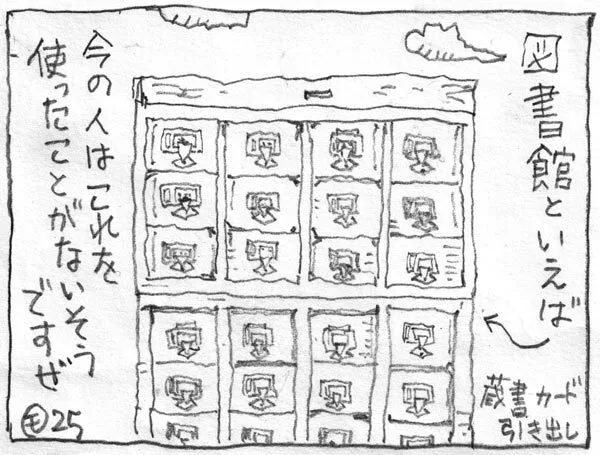 図書館といえば
蔵書カード
引き出し
今の人はこれを
使ったことがないそう
ですぜ
モ25